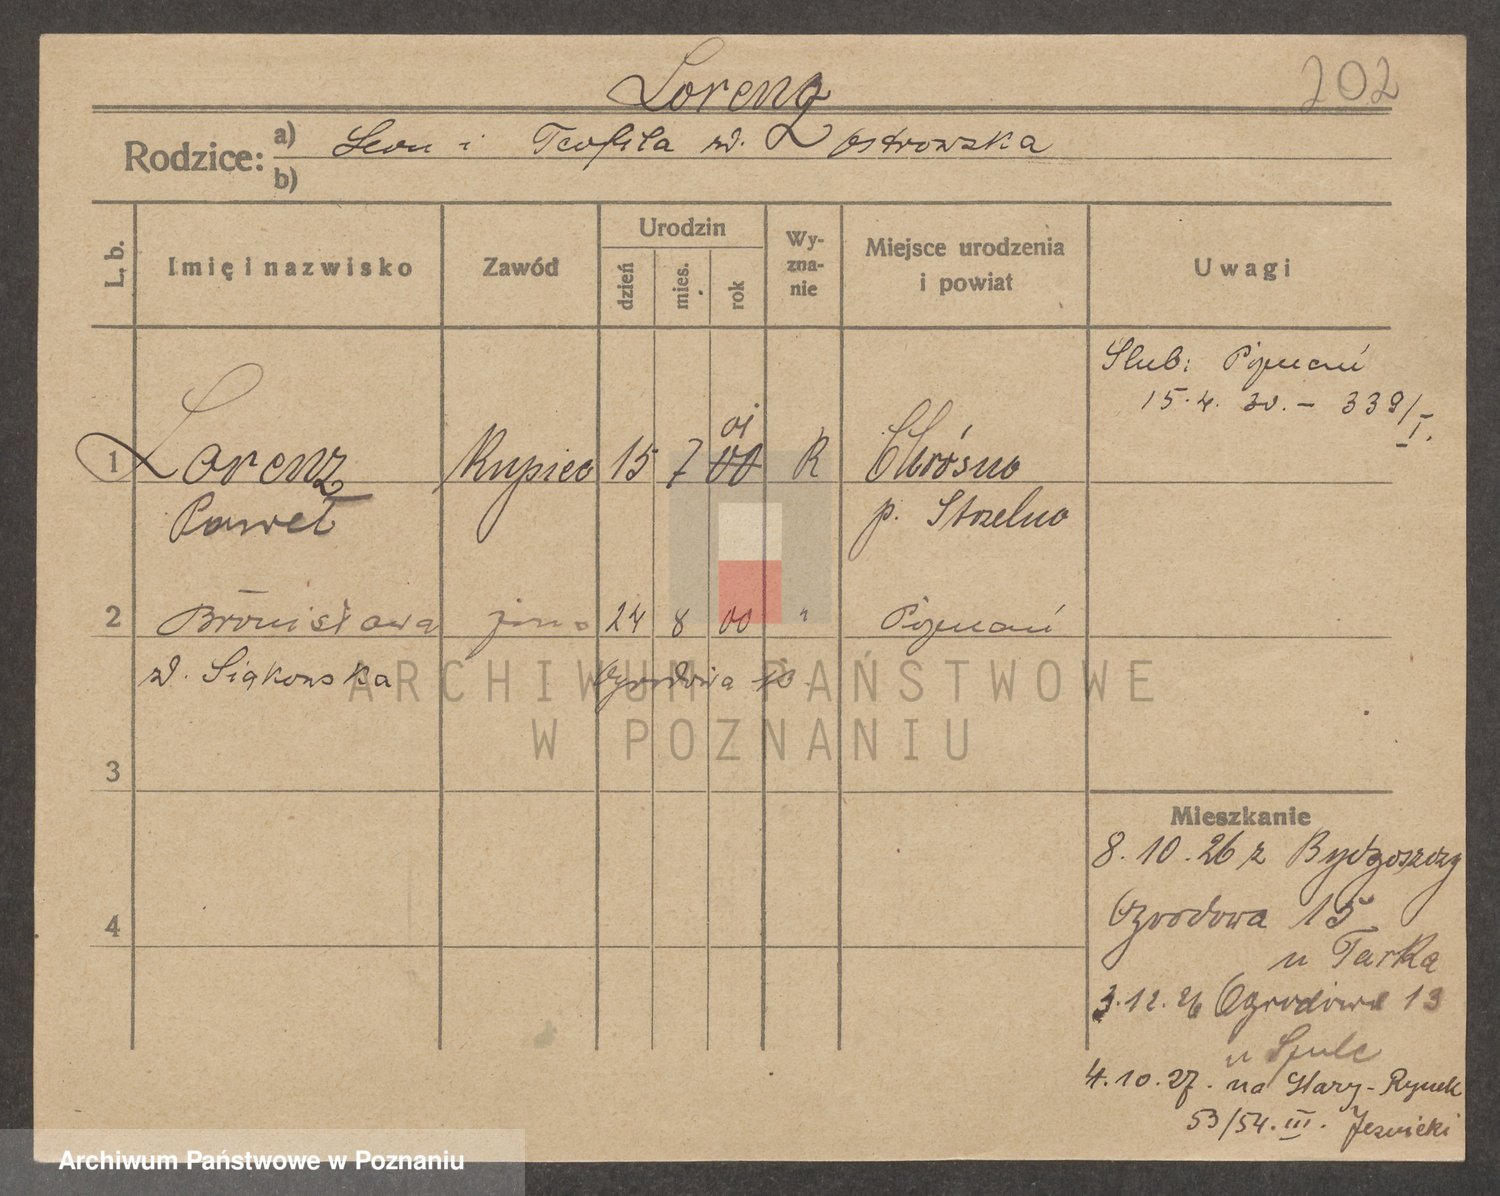 Lorenz
202
Rodzice: a) Leon i Teofila zd. Ostrowska
b)
L. b. Imię i nazwisko Zawód Urodzin dzień mies. rok Wy-zna-nie Miejsce urodzenia i powiat Uwagi
Ślub: Poznań
15.4. 30. – 339/I.
01
1 Lorenz Kupiec 15 7 00 R Chrósno
Paweł p. Strzelno
2 Bronisława żona 24 8 00 " Poznań
zd. Siąkowska Ogrodowa 13
ARCHIWUM PAŃSTWOWE
W POZNANIU
3
Mieszkanie
8.10.26 z Bydgoszczy
4 Ogrodowa 15
u Tarka
3.12.26 Ogrodowa 13
u Szulc
4.10.27. na Stary-Rynek
53/54.III. Jezwicki
Archiwum Państwowe w Poznaniu